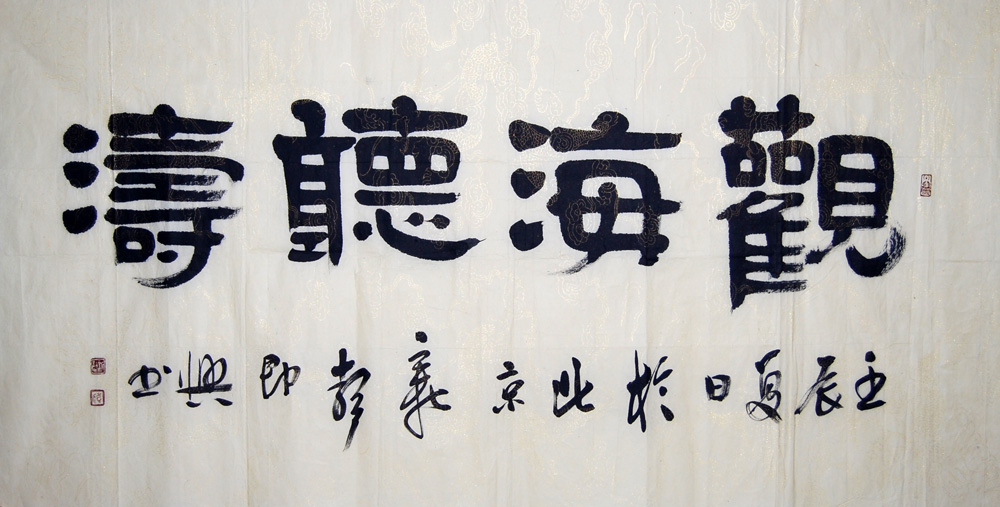 觀海聽濤
壬辰夏日於北京義彰即興書